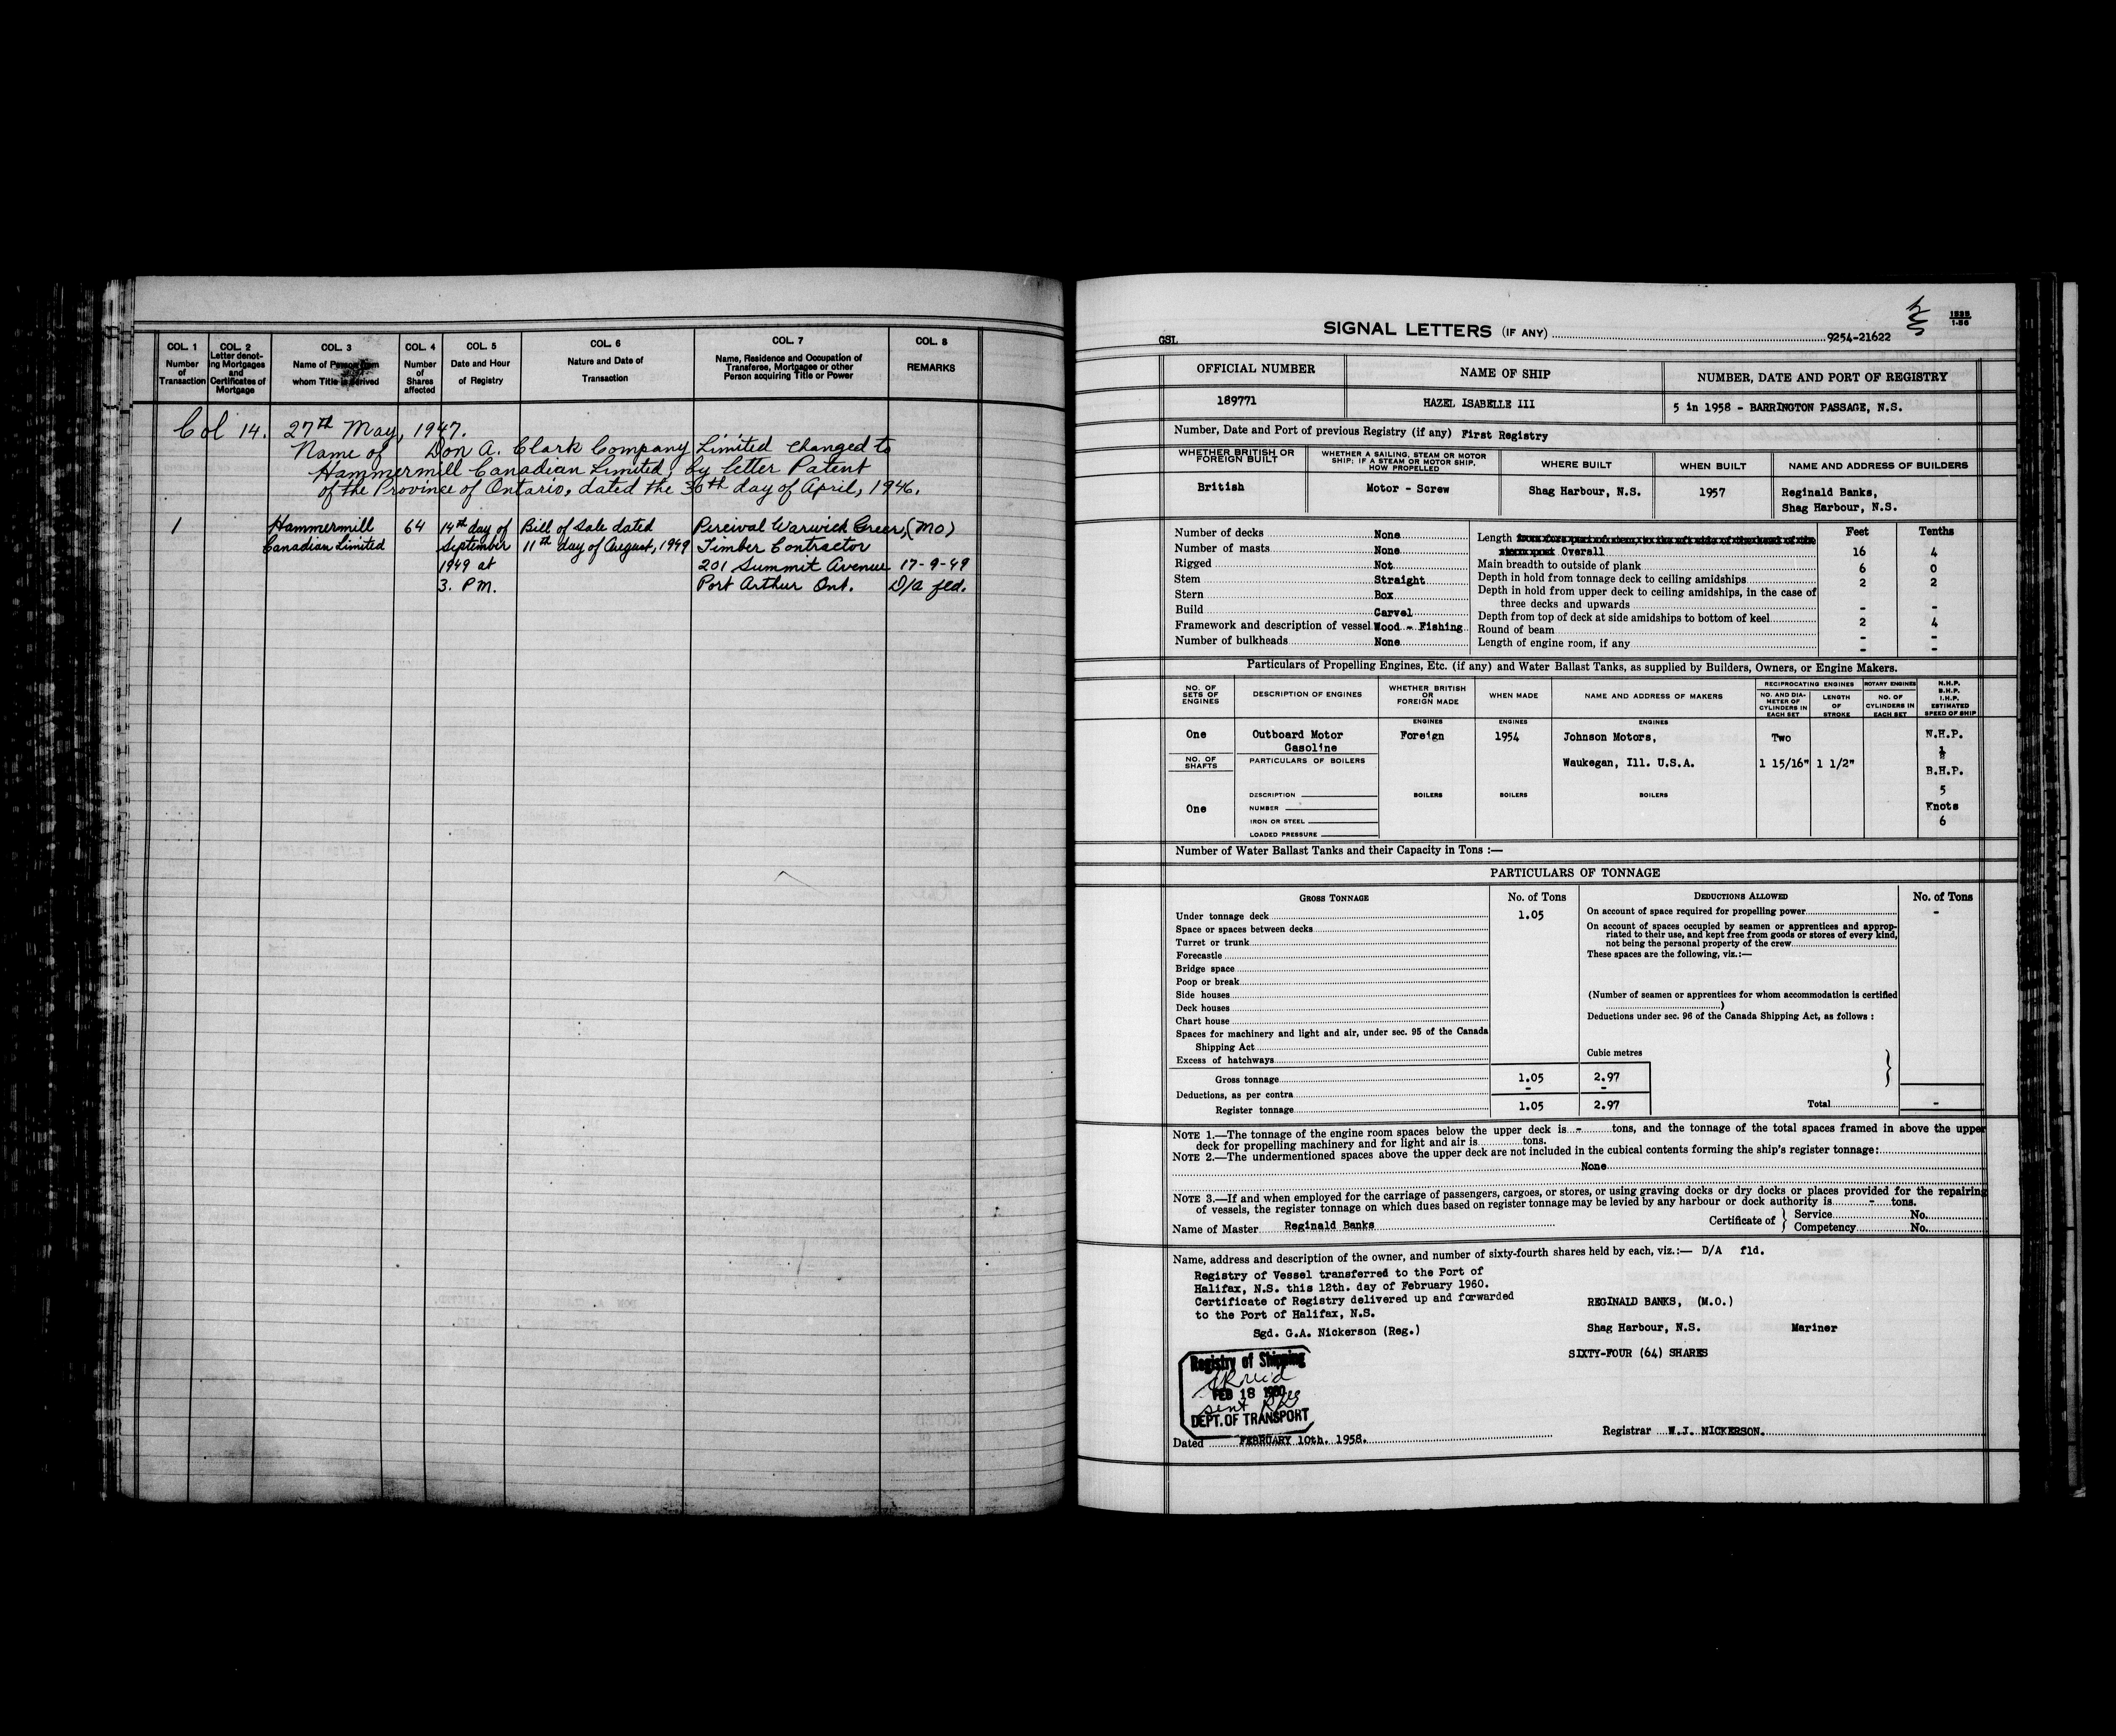 COL. 1 COL. 2 COL. 3 COL. 4 COL. 5 COL. 6 COL. 7 COL. 8
Number of Transaction
Letter denoting Mortgages and Certificates of Mortgage
Name of Person from whom Title is derived
Number of Shares affected
Date and Hour of Registry
Nature and Date of Transaction
Name, Residence and Occupation of Transferee, Mortgagee or other Person acquiring Title or Power
REMARKS
Col 14. 27th May, 1947.
Name of Don A. Clark Company Limited changed to
Hammermill Canadian Limited, by letter Patent
of the Province of Ontario, dated the 30th day of April, 1946.
1 Hammermill 64 14th day of Bill of Sale dated Percival Warwick Greer, (MO)
Canadian Limited September 11th day of August, 1949 Timber Contractor
1949 at 201 Summit Avenue 17-9-49
3. PM. Port Arthur Ont. D/a fld.
1535
1-56
GSL SIGNAL LETTERS (IF ANY) 9254-21622
OFFICIAL NUMBER NAME OF SHIP NUMBER, DATE AND PORT OF REGISTRY
189771 HAZEL ISABELLE III 5 in 1958 - BARRINGTON PASSAGE, N.S.
Number, Date and Port of previous Registry (if any) First Registry
WHETHER BRITISH OR FOREIGN BUILT
WHETHER A SAILING, STEAM OR MOTOR SHIP; IF A STEAM OR MOTOR SHIP, HOW PROPELLED
WHERE BUILT WHEN BUILT NAME AND ADDRESS OF BUILDERS
British Motor - Screw Shag Harbour, N.S. 1957 Reginald Banks,
Shag Harbour, N.S.
Number of decks None
Number of masts None
Rigged Not
Stem Straight
Stern Box
Build Carvel
Framework and description of vessel Wood - Fishing
Number of bulkheads None
Feet Tenths
Length from fore part of stem, to the aft side of the head of the
stern post Overall 16 4
Main breadth to outside of plank 6 0
Depth in hold from tonnage deck to ceiling amidships 2 2
Depth in hold from upper deck to ceiling amidships, in the case of
three decks and upwards - -
Depth from top of deck at side amidships to bottom of keel 2 4
Round of beam - -
Length of engine room, if any - -
Particulars of Propelling Engines, Etc. (if any) and Water Ballast Tanks, as supplied by Builders, Owners, or Engine Makers.
NO. OF SETS OF ENGINES
DESCRIPTION OF ENGINES
WHETHER BRITISH OR FOREIGN MADE
WHEN MADE
NAME AND ADDRESS OF MAKERS
RECIPROCATING ENGINES ROTARY ENGINES
NO. AND DIAMETER OF CYLINDERS IN EACH SET
LENGTH OF STROKE
NO. OF CYLINDERS IN EACH SET
N.H.P. B.H.P. I.H.P. ESTIMATED SPEED OF SHIP
ENGINES ENGINES ENGINES
One Outboard Motor Foreign 1954 Johnson Motors, Two N.H.P.
Gasoline ½
NO. OF SHAFTS PARTICULARS OF BOILERS Waukegan, Ill. U.S.A. 1 15/16" 1 1/2" B.H.P.
5
DESCRIPTION BOILERS BOILERS BOILERS
One NUMBER Knots
IRON OR STEEL 6
LOADED PRESSURE
Number of Water Ballast Tanks and their Capacity in Tons :—
PARTICULARS OF TONNAGE
GROSS TONNAGE No. of Tons DEDUCTIONS ALLOWED No. of Tons
Under tonnage deck 1.05
Space or spaces between decks
Turret or trunk
Forecastle
Bridge space
Poop or break
Side houses
Deck houses
Chart house
Spaces for machinery and light and air, under sec. 95 of the Canada
Shipping Act
Excess of hatchways
Cubic metres
Gross tonnage 1.05 2.97
Deductions, as per contra - -
Register tonnage 1.05 2.97
On account of space required for propelling power -
On account of spaces occupied by seamen or apprentices and approp-
riated to their use, and kept free from goods or stores of every kind,
not being the personal property of the crew
These spaces are the following, viz.:—
(Number of seamen or apprentices for whom accommodation is certified
)
Deductions under sec. 96 of the Canada Shipping Act, as follows :
Total -
NOTE 1.—The tonnage of the engine room spaces below the upper deck is - tons, and the tonnage of the total spaces framed in above the upper
deck for propelling machinery and for light and air is tons.
NOTE 2.—The undermentioned spaces above the upper deck are not included in the cubical contents forming the ship's register tonnage:
None
NOTE 3.—If and when employed for the carriage of passengers, cargoes, or stores, or using graving docks or dry docks or places provided for the repairing
of vessels, the register tonnage on which dues based on register tonnage may be levied by any harbour or dock authority is - tons.
Name of Master Reginald Banks Certificate of Service No.
Competency No.
Name, address and description of the owner, and number of sixty-fourth shares held by each, viz.:— D/A fld.
Registry of Vessel transferred to the Port of
Halifax, N.S. this 12th. day of February 1960.
Certificate of Registry delivered up and forwarded
to the Port of Halifax, N.S.
Sgd. G.A. Nickerson (Reg.)
REGINALD BANKS, (M.O.)
Shag Harbour, N.S. Mariner
SIXTY-FOUR (64) SHARES
Registry of Shipping
FEB 18 1960
DEPT. OF TRANSPORT
Dated FEBRUARY 10th. 1958. Registrar W.J. NICKERSON.